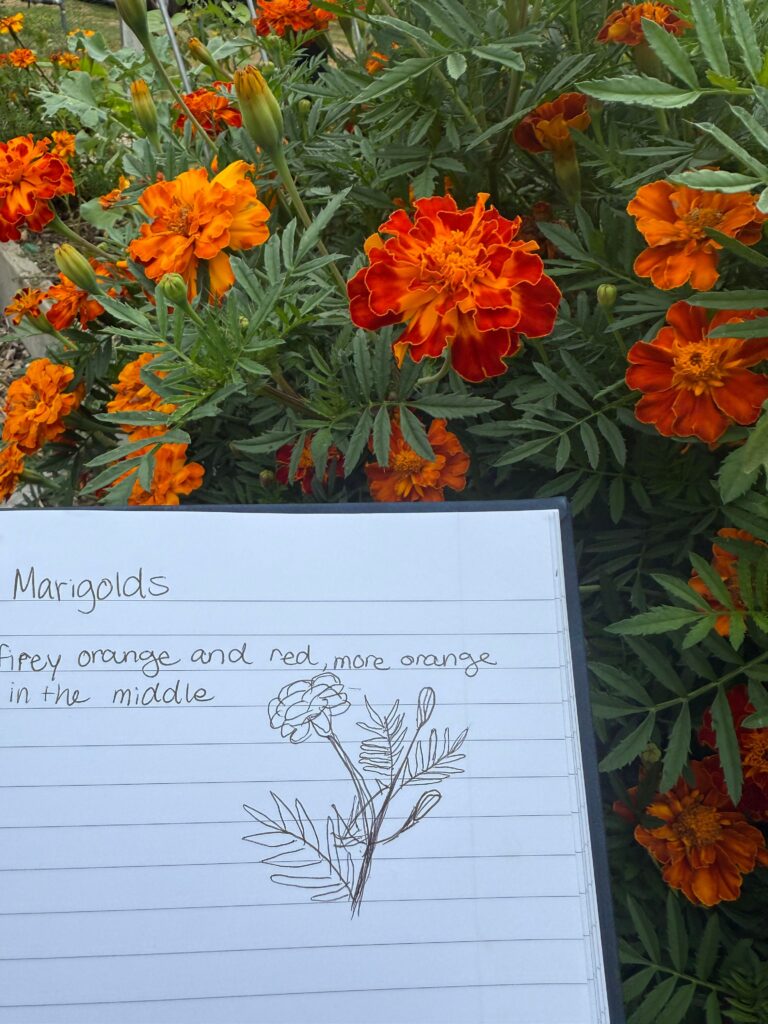 Marigolds
firey orange and red, more orange
in the middle